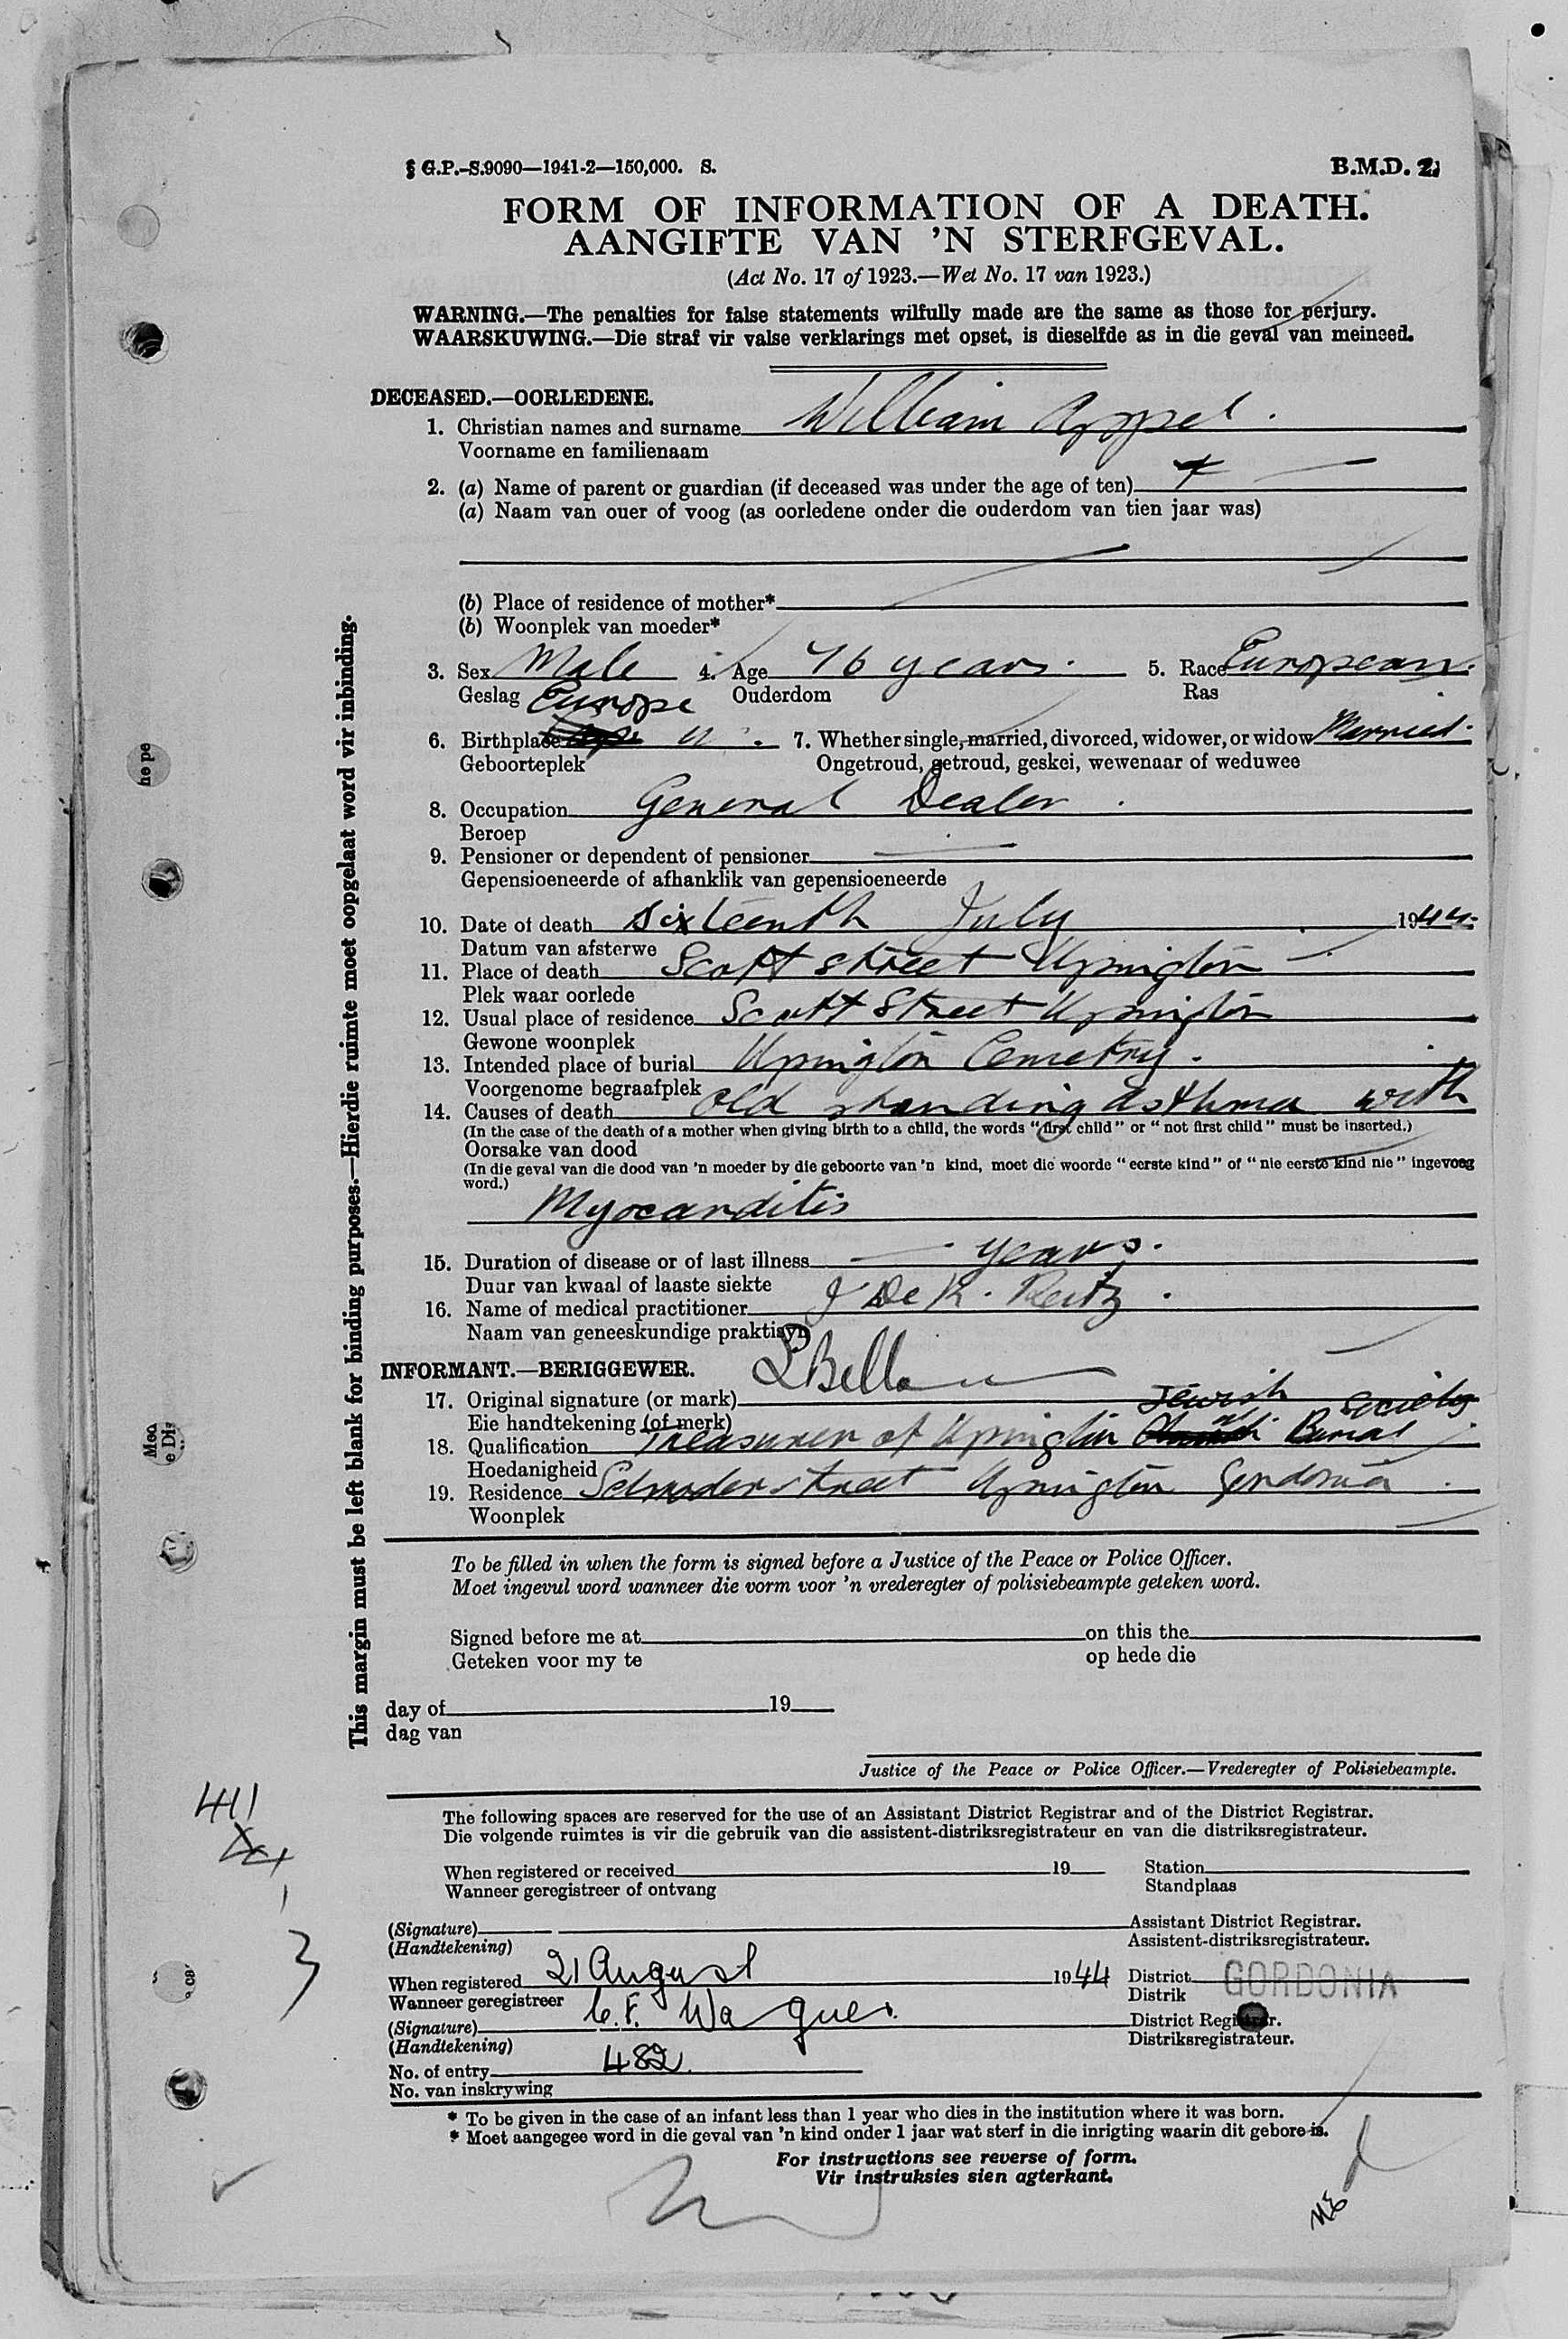 § G.P.-S.9090—1941-2—150,000. S. B.M.D. 2.
FORM OF INFORMATION OF A DEATH.
AANGIFTE VAN 'N STERFGEVAL.
(Act No. 17 of 1923.—Wet No. 17 van 1923.)
WARNING.—The penalties for false statements wilfully made are the same as those for perjury.
WAARSKUWING.—Die straf vir valse verklarings met opset, is dieselfde as in die geval van meineed.
DECEASED.—OORLEDENE.
1. Christian names and surname William Appel.
Voorname en familienaam
2. (a) Name of parent or guardian (if deceased was under the age of ten)
(a) Naam van ouer of voog (as oorledene onder die ouderdom van tien jaar was)
(b) Place of residence of mother*
(b) Woonplek van moeder*
3. Sex Male 4. Age 76 years. 5. Race European.
Geslag Ouderdom Ras
Europe
6. Birthplace 7. Whether single, married, divorced, widower, or widow Married.
Geboorteplek Ongetroud, getroud, geskei, wewenaar of weduwee
8. Occupation General Dealer.
Beroep
9. Pensioner or dependent of pensioner
Gepensioeneerde of afhanklik van gepensioeneerde
10. Date of death Sixteenth July 1944.
Datum van afsterwe
11. Place of death Scott Street Upington
Plek waar oorlede
12. Usual place of residence Scott Street Upington
Gewone woonplek
13. Intended place of burial Upington Cemetry.
Voorgenome begraafplek
14. Causes of death Old standing asthma with
(In the case of the death of a mother when giving birth to a child, the words "first child" or "not first child" must be inserted.)
Oorsake van dood
(In die geval van die dood van 'n moeder by die geboorte van 'n kind, moet die woorde "eerste kind" of "nie eerste kind nie" ingevoeg
word.)
Myocarditis
15. Duration of disease or of last illness years.
Duur van kwaal of laaste siekte
16. Name of medical practitioner J De K. Reitz.
Naam van geneeskundige praktisyn
INFORMANT.—BERIGGEWER.
17. Original signature (or mark)
Eie handtekening (of merk)
Jewish Society
18. Qualification Treasurer of Upington Burial
Hoedanigheid
19. Residence Schroder Street Upington Gordonia.
Woonplek
To be filled in when the form is signed before a Justice of the Peace or Police Officer.
Moet ingevul word wanneer die vorm voor 'n vrederegter of polisiebeampte geteken word.
Signed before me at on this the
Geteken voor my te op hede die
day of 19
dag van
Justice of the Peace or Police Officer.—Vrederegter of Polisiebeampte.
The following spaces are reserved for the use of an Assistant District Registrar and of the District Registrar.
Die volgende ruimtes is vir die gebruik van die assistent-distriksregistrateur en van die distriksregistrateur.
When registered or received 19 Station
Wanneer geregistreer of ontvang Standplaas
(Signature) Assistant District Registrar.
(Handtekening) Assistent-distriksregistrateur.
When registered 21 August 1944 District GORDONIA
Wanneer geregistreer Distrik
(Signature) C.F. Wagner. District Registrar.
(Handtekening) Distriksregistrateur.
No. of entry 482.
No. van inskrywing
* To be given in the case of an infant less than 1 year who dies in the institution where it was born.
* Moet aangegee word in die geval van 'n kind onder 1 jaar wat sterf in die inrigting waarin dit gebore is.
For instructions see reverse of form.
Vir instruksies sien agterkant.
This margin must be left blank for binding purposes.—Hierdie ruimte moet oopgelaat word vir inbinding.
411
3